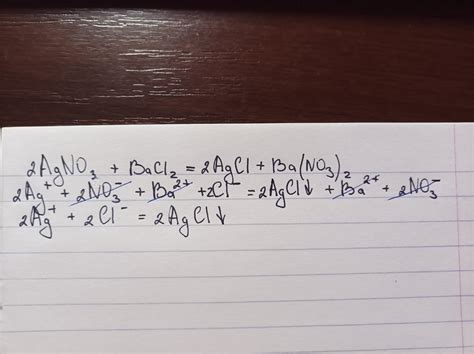 2AgNO₃ + BaCl₂ = 2AgCl + Ba(NO₃)₂
2Ag⁺ + 2NO₃⁻ + Ba²⁺ + 2Cl⁻ = 2AgCl↓ + Ba²⁺ + 2NO₃⁻
2Ag⁺ + 2Cl⁻ = 2AgCl↓